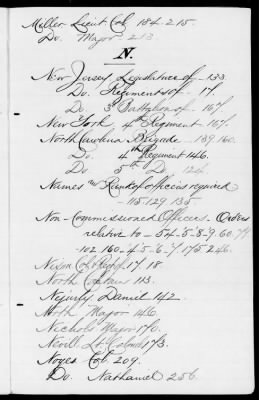 Miller Lieut Col 184-215.
Do. Major 213.
N.
New Jersey Legislature of - 133.
Do. Regiments of - 17.
Do. 3d Battalion of - 167.
New York 4th Regiment 167.
North Carolina Brigade 159.160.
Do. 4th Regiment 146.
Do 5th Do. 124.
Names & Rank of officers required
115.129.135.
Non-Commissioned Officers - Orders
relative to - 54-5-8-9.60.
102.160-4-5-6-7.175.246.
Nixon Col 17.18.
North Captain 113.
Daniel 142.
North Major 146.
Nichols Major 170.
Nevill Lt. Colonel 173.
Noyes Col. 209.
Do. Nathaniel 256.